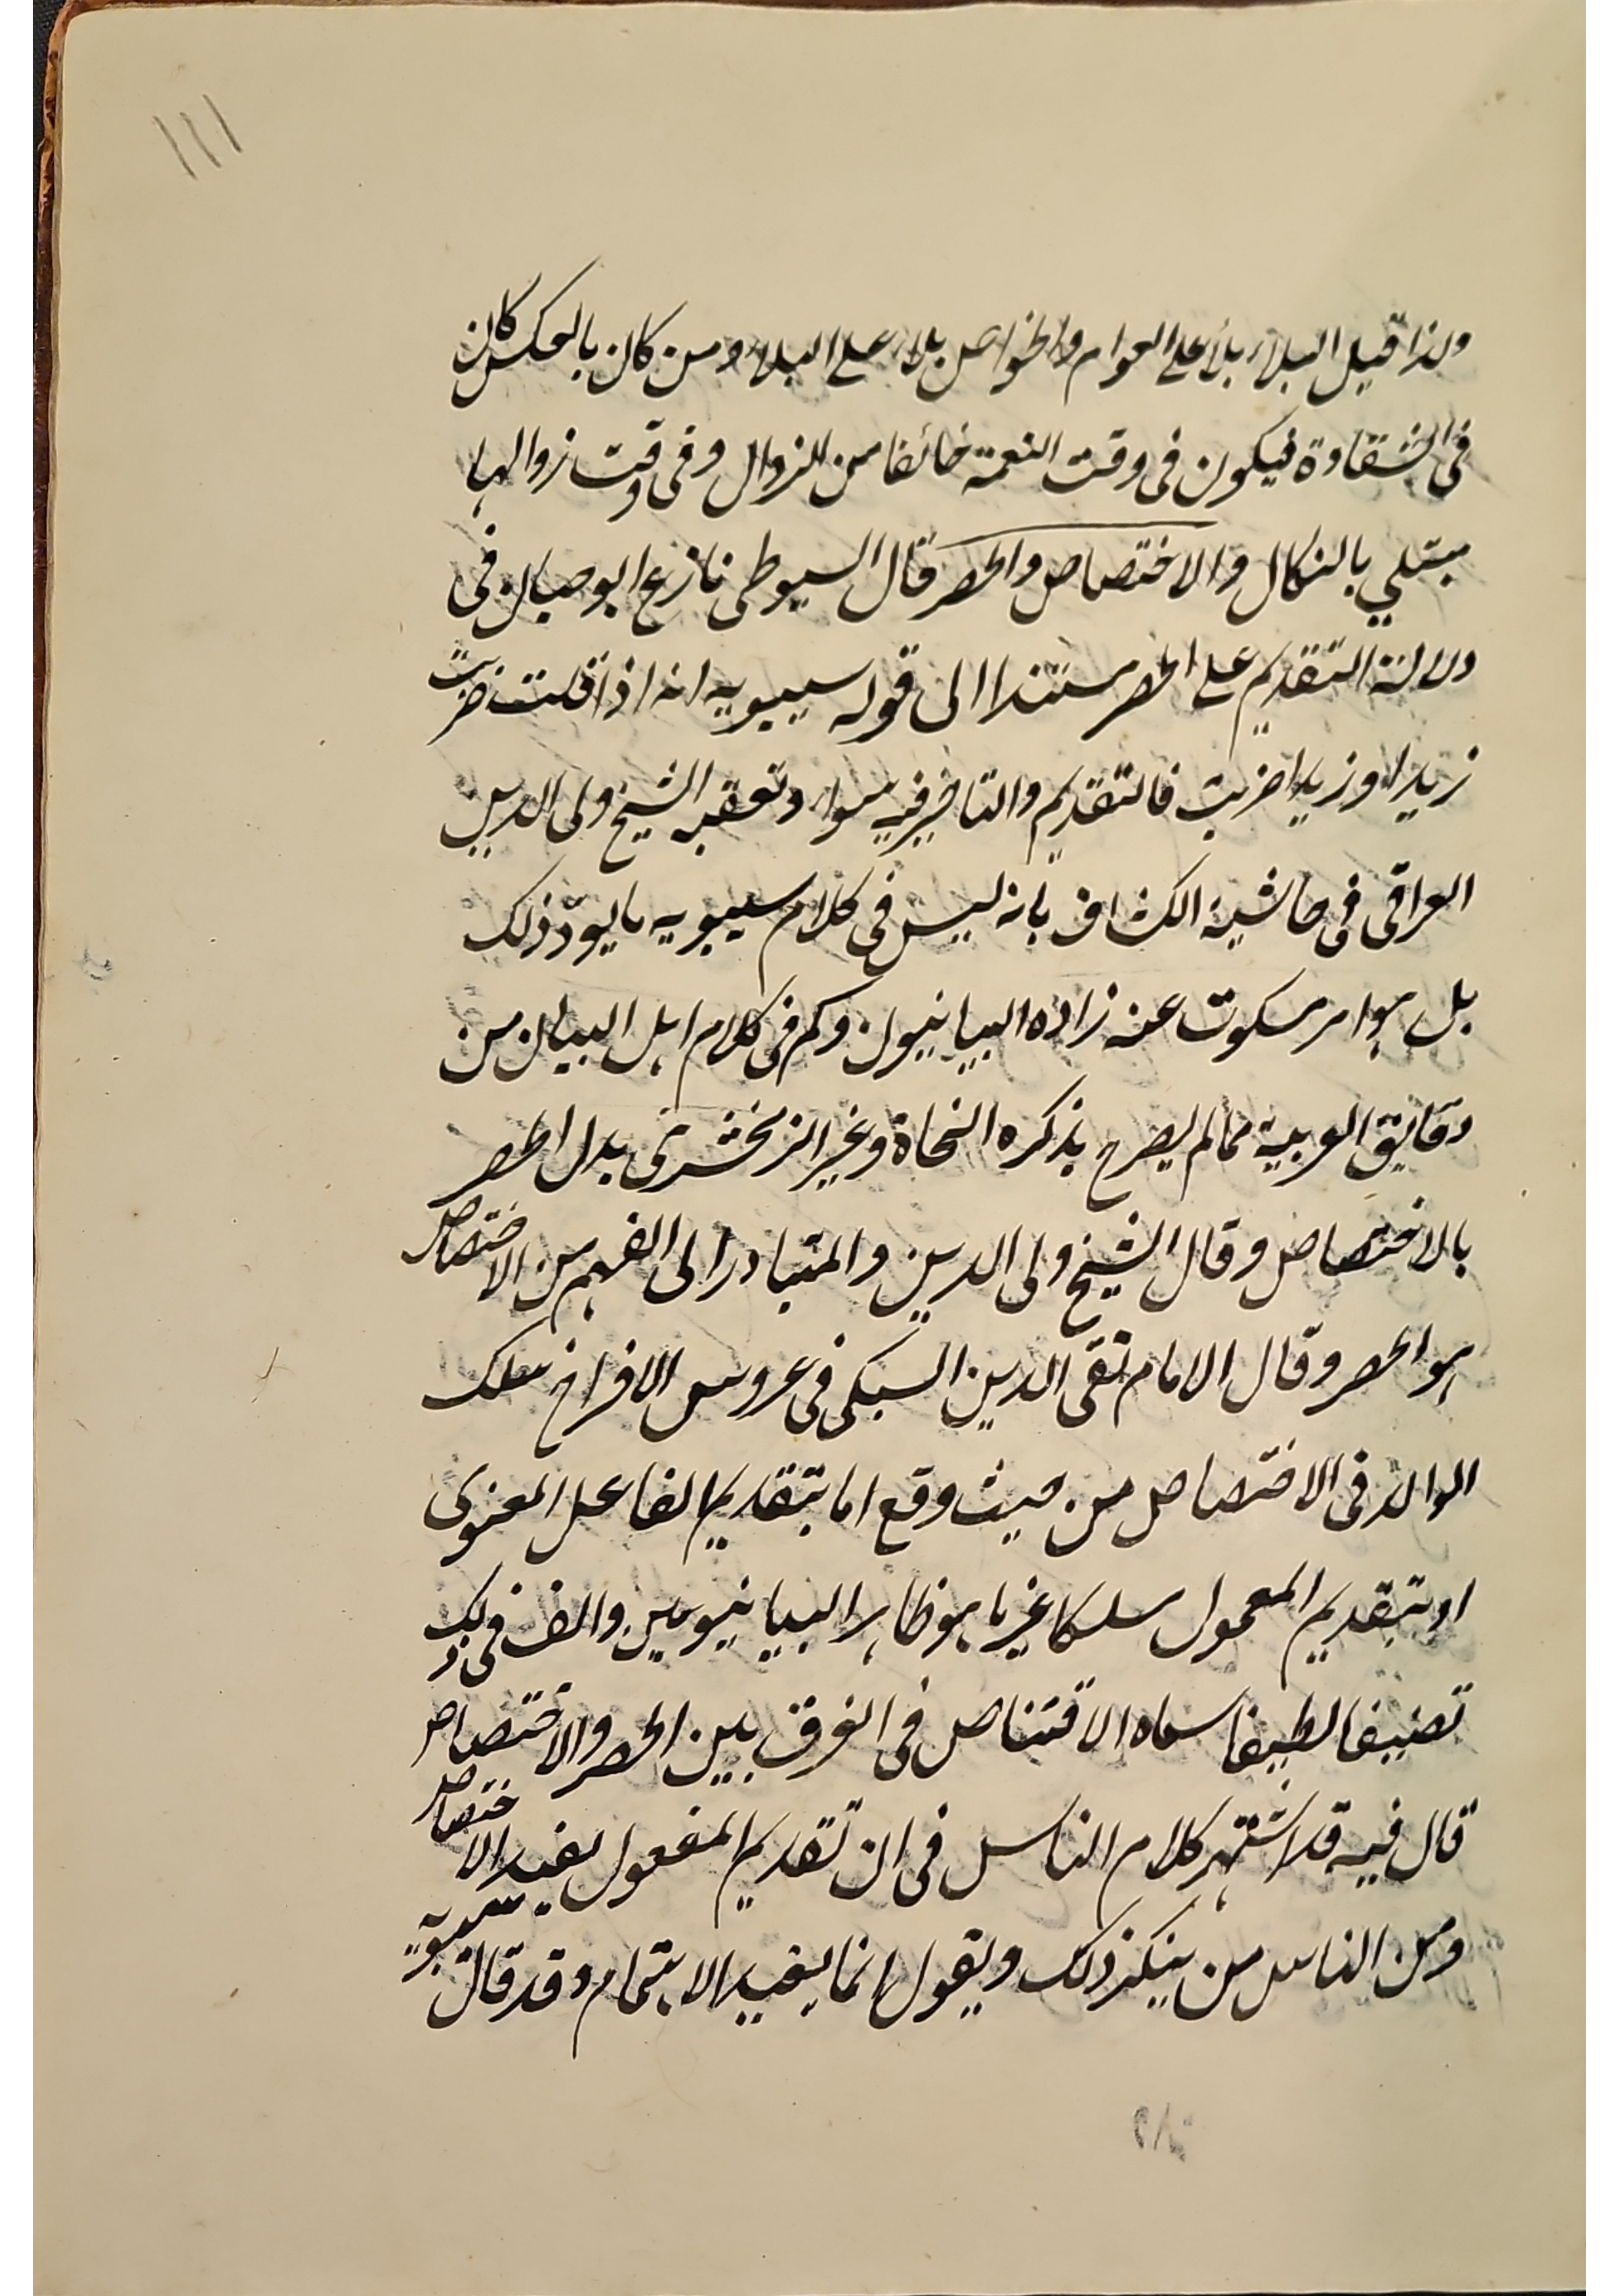 ١١١
ولذا قيل البلاء بلاء على العوام والخواص بلاء على البلاء ومن كان بالعكس كان
فى الشقاوة فيكون فى وقت النعمة خائفا من الزوال وفى وقت زوالها
مبتلى بالنكال والاختصاص والحصر قال السيوطى نازع ابو حيان فى
دلالة التقديم على الحصر مستندا الى قول سيبويه انه اذا قلت ضربت
زيدا او زيدا ضربت فالتقديم والتاخير فيه سواء وتعقبه الشيخ ولى الدين
العراقى فى حاشية الكشاف بانه ليس فى كلام سيبويه ما يرد ذلك
بل هو امر مسكوت عنه زاده البيانيون وكم فى كلام اهل البيان من
دقايق العربية مما لم يصرح بذكره النحاة وغير الزمخشرى بدل الحصر
بالاختصاص وقال الشيخ ولى الدين والمتبادر الى الفهم من الاختصاص
هو الحصر وقال الامام تقى الدين السبكى فى عروس الافراح سلك
الوالد فى الاختصاص من حيث وقع اما بتقديم الفاعل المعنوى
او بتقديم المعمول مسلكا غير ما هو ظاهر البيانيين والف فى ذلك
تصنيفا لطيفا سماه الاقتناص فى الفرق بين الحصر والاختصاص
قال فيه قد اشتهر كلام الناس فى ان تقديم المفعول يفيد الاختصاص
ومن الناس من ينكر ذلك ويقول انما يفيد الاهتمام وقد قال سيبويه